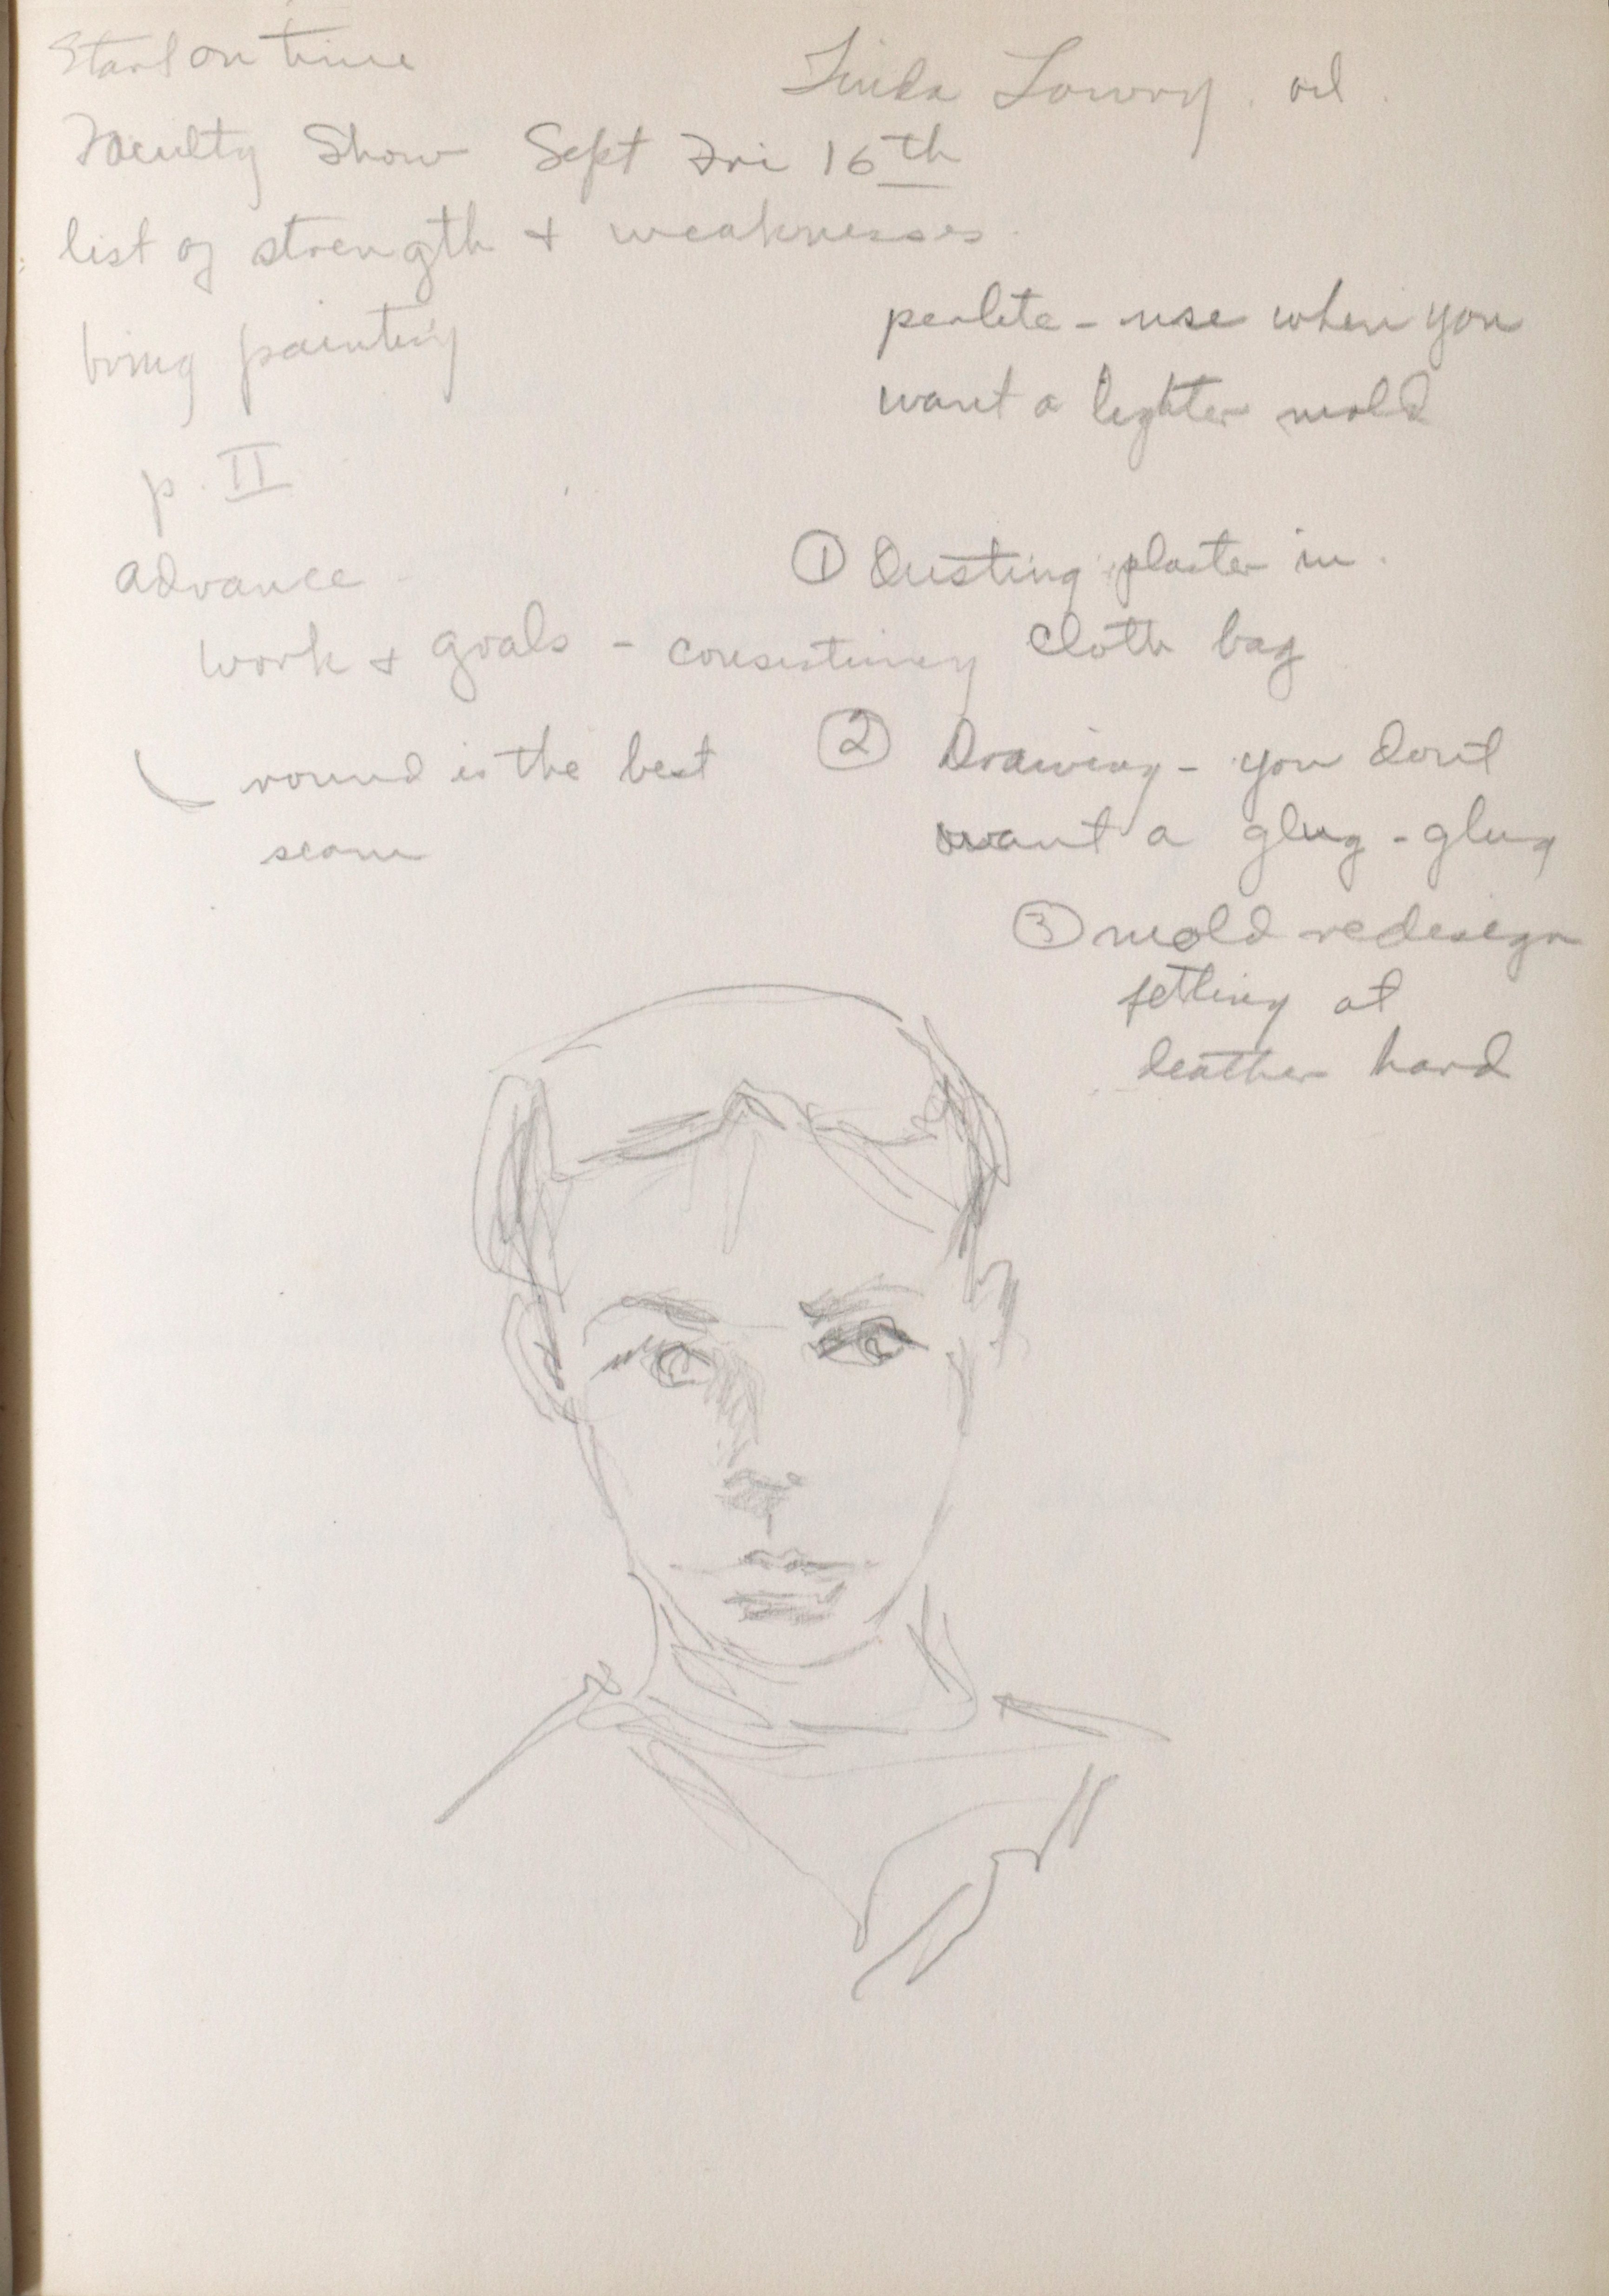 Start on time
Linda Lowry. oil.
Faculty Show Sept Fri 16th
list of strength + weaknesses.
bring painting
perlite - use when you
want a lighter mold
p. II
advance -
work + goals - consistincy
round is the best
seam
① Dusting plaster in.
cloth bag
② Drawing - you don't
want a glug - glug
③ mold redesign
fettling at
leather hard